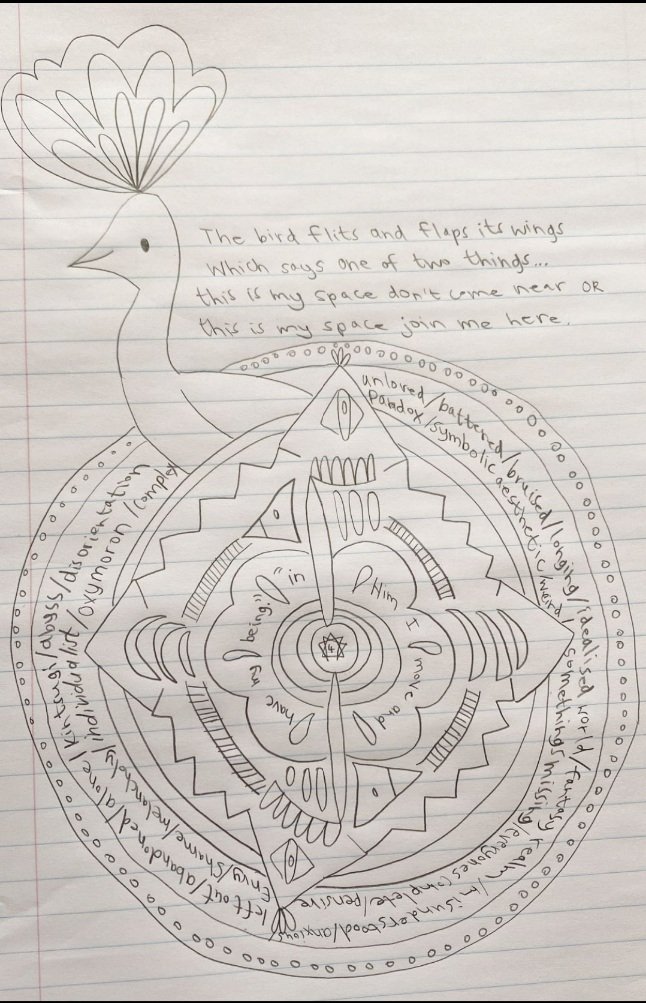 The bird flits and flaps its wings
which says one of two things...
this is my space don't come near OR
this is my space join me here.
unloved/battered/bruised/longing/idealised world/fantasy realm/misunderstood/anxious
Paradox/symbolic aesthetic/weird/somethings missing/everyones complete/pensive
left out/abandoned/alone/kintsugi/abyss/disorientation
Envy/shame/melancholy/individualist/oxymoron/complex
"in Him I move and have my being."
4